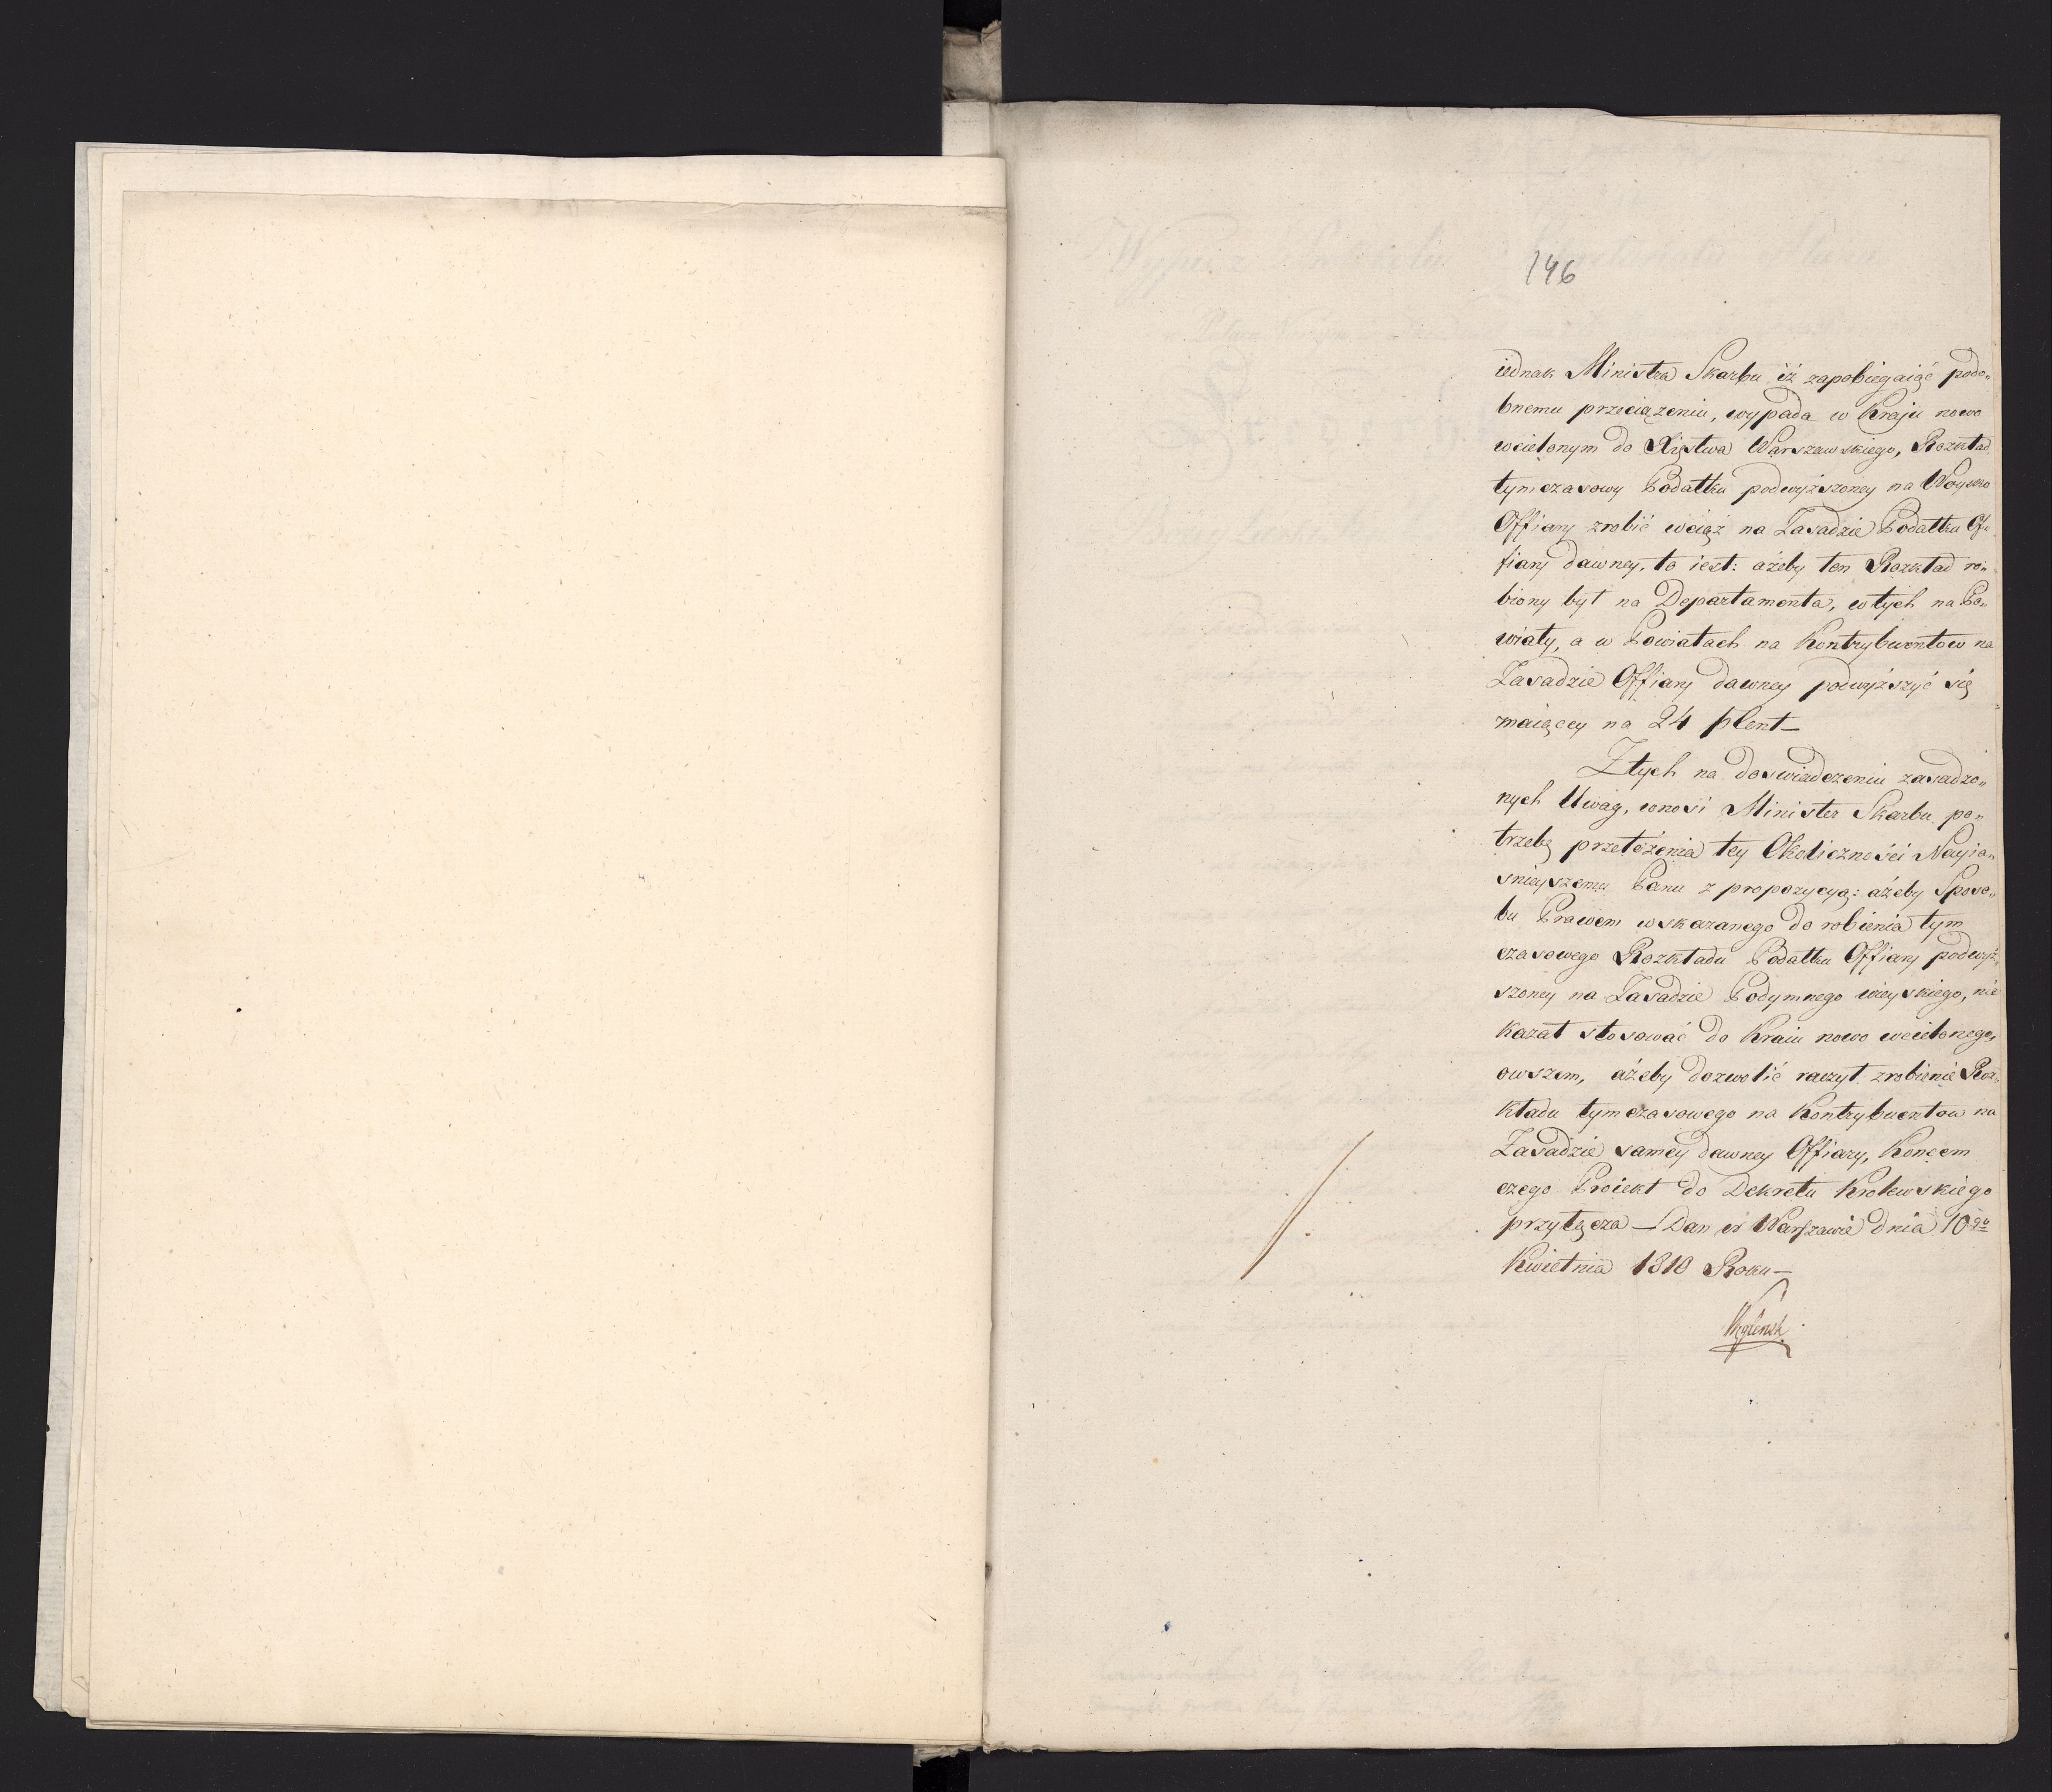 146
iednak Ministra Skarbu iż zapobiegaiąć podo„
bnemu przeciązeniu, wypada w Kraju nowo
wcielonym do Xięstwa Warszawskiego, Rozkład
tymczasowy Podatku podwyższoney na Woysko
Offiary zrobić wciąż na Zasadzie Podatku Of„
fiary dawney, to iest: ażeby ten Rozkład ro„
biony był na Departamenta, w tych na Po„
wiaty, a w Powiatach na Kontrybuentow na
Zasadzie Offiary dawney podwyższyć się
maiącey na 24 pCent—
Z tych na doswiadczeniu zasadzo„
nych Uwag, wnosi Minister Skarbu po„
trzebę przełożenia tey Okoliczności Nayia„
snieyszemu Panu z propozycyą: ażeby Sposo„
bu Prawem wskazanego do robienia tym
czasowego Rozkładu Podatku Offiary podwyż„
szoney na Zasadzie Podymnego wieyskiego, nie
kazał stosować do Kraiu nowo wcielonego,
owszem, ażeby dozwolić raczył zrobienie Roz„
kładu tymczasowego na Kontrybuentow na
Zasadzie samey dawney Offiary, Koncem
czego Proiekt do Dekretu Krolewskiego
przyłącza — Dan w Warszawie dnia 10go
Kwietnia 1810 Roku—
Węglensk